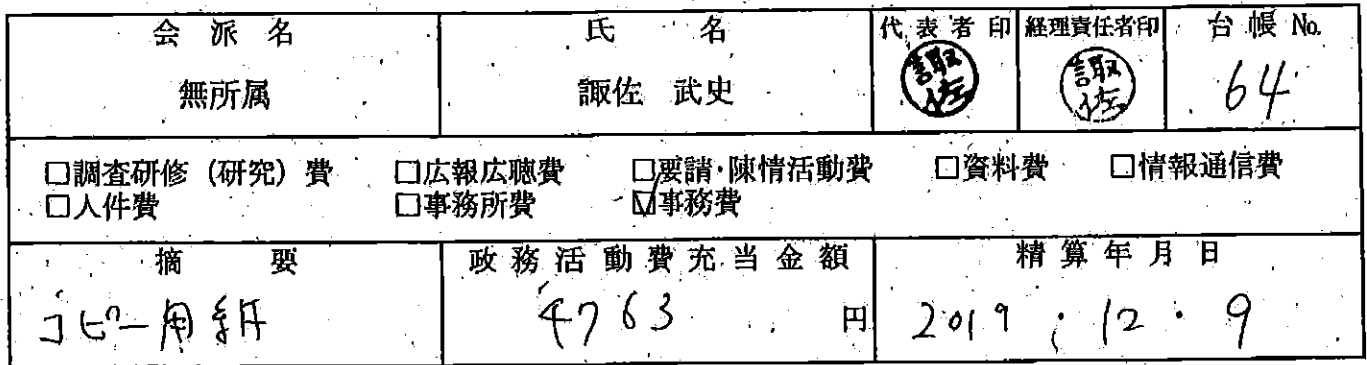 会派名 氏名 代表者印 経理責任者印 台帳 No.
無所属 諏佐 武史 諏佐 諏佐 64
□調査研修（研究）費 □広報広聴費 □要請・陳情活動費 □資料費 □情報通信費
□人件費 □事務所費 ☑事務費
摘要 政務活動費充当金額 精算年月日
コピー用紙 4763 円 2019.12.9